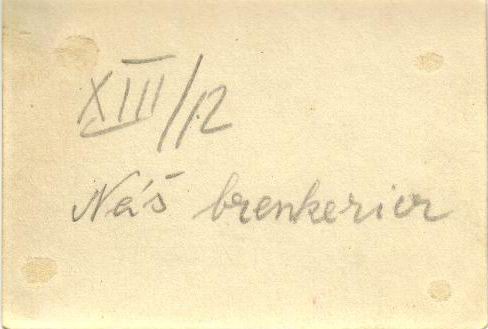 XIII/12
Náš brenkerier